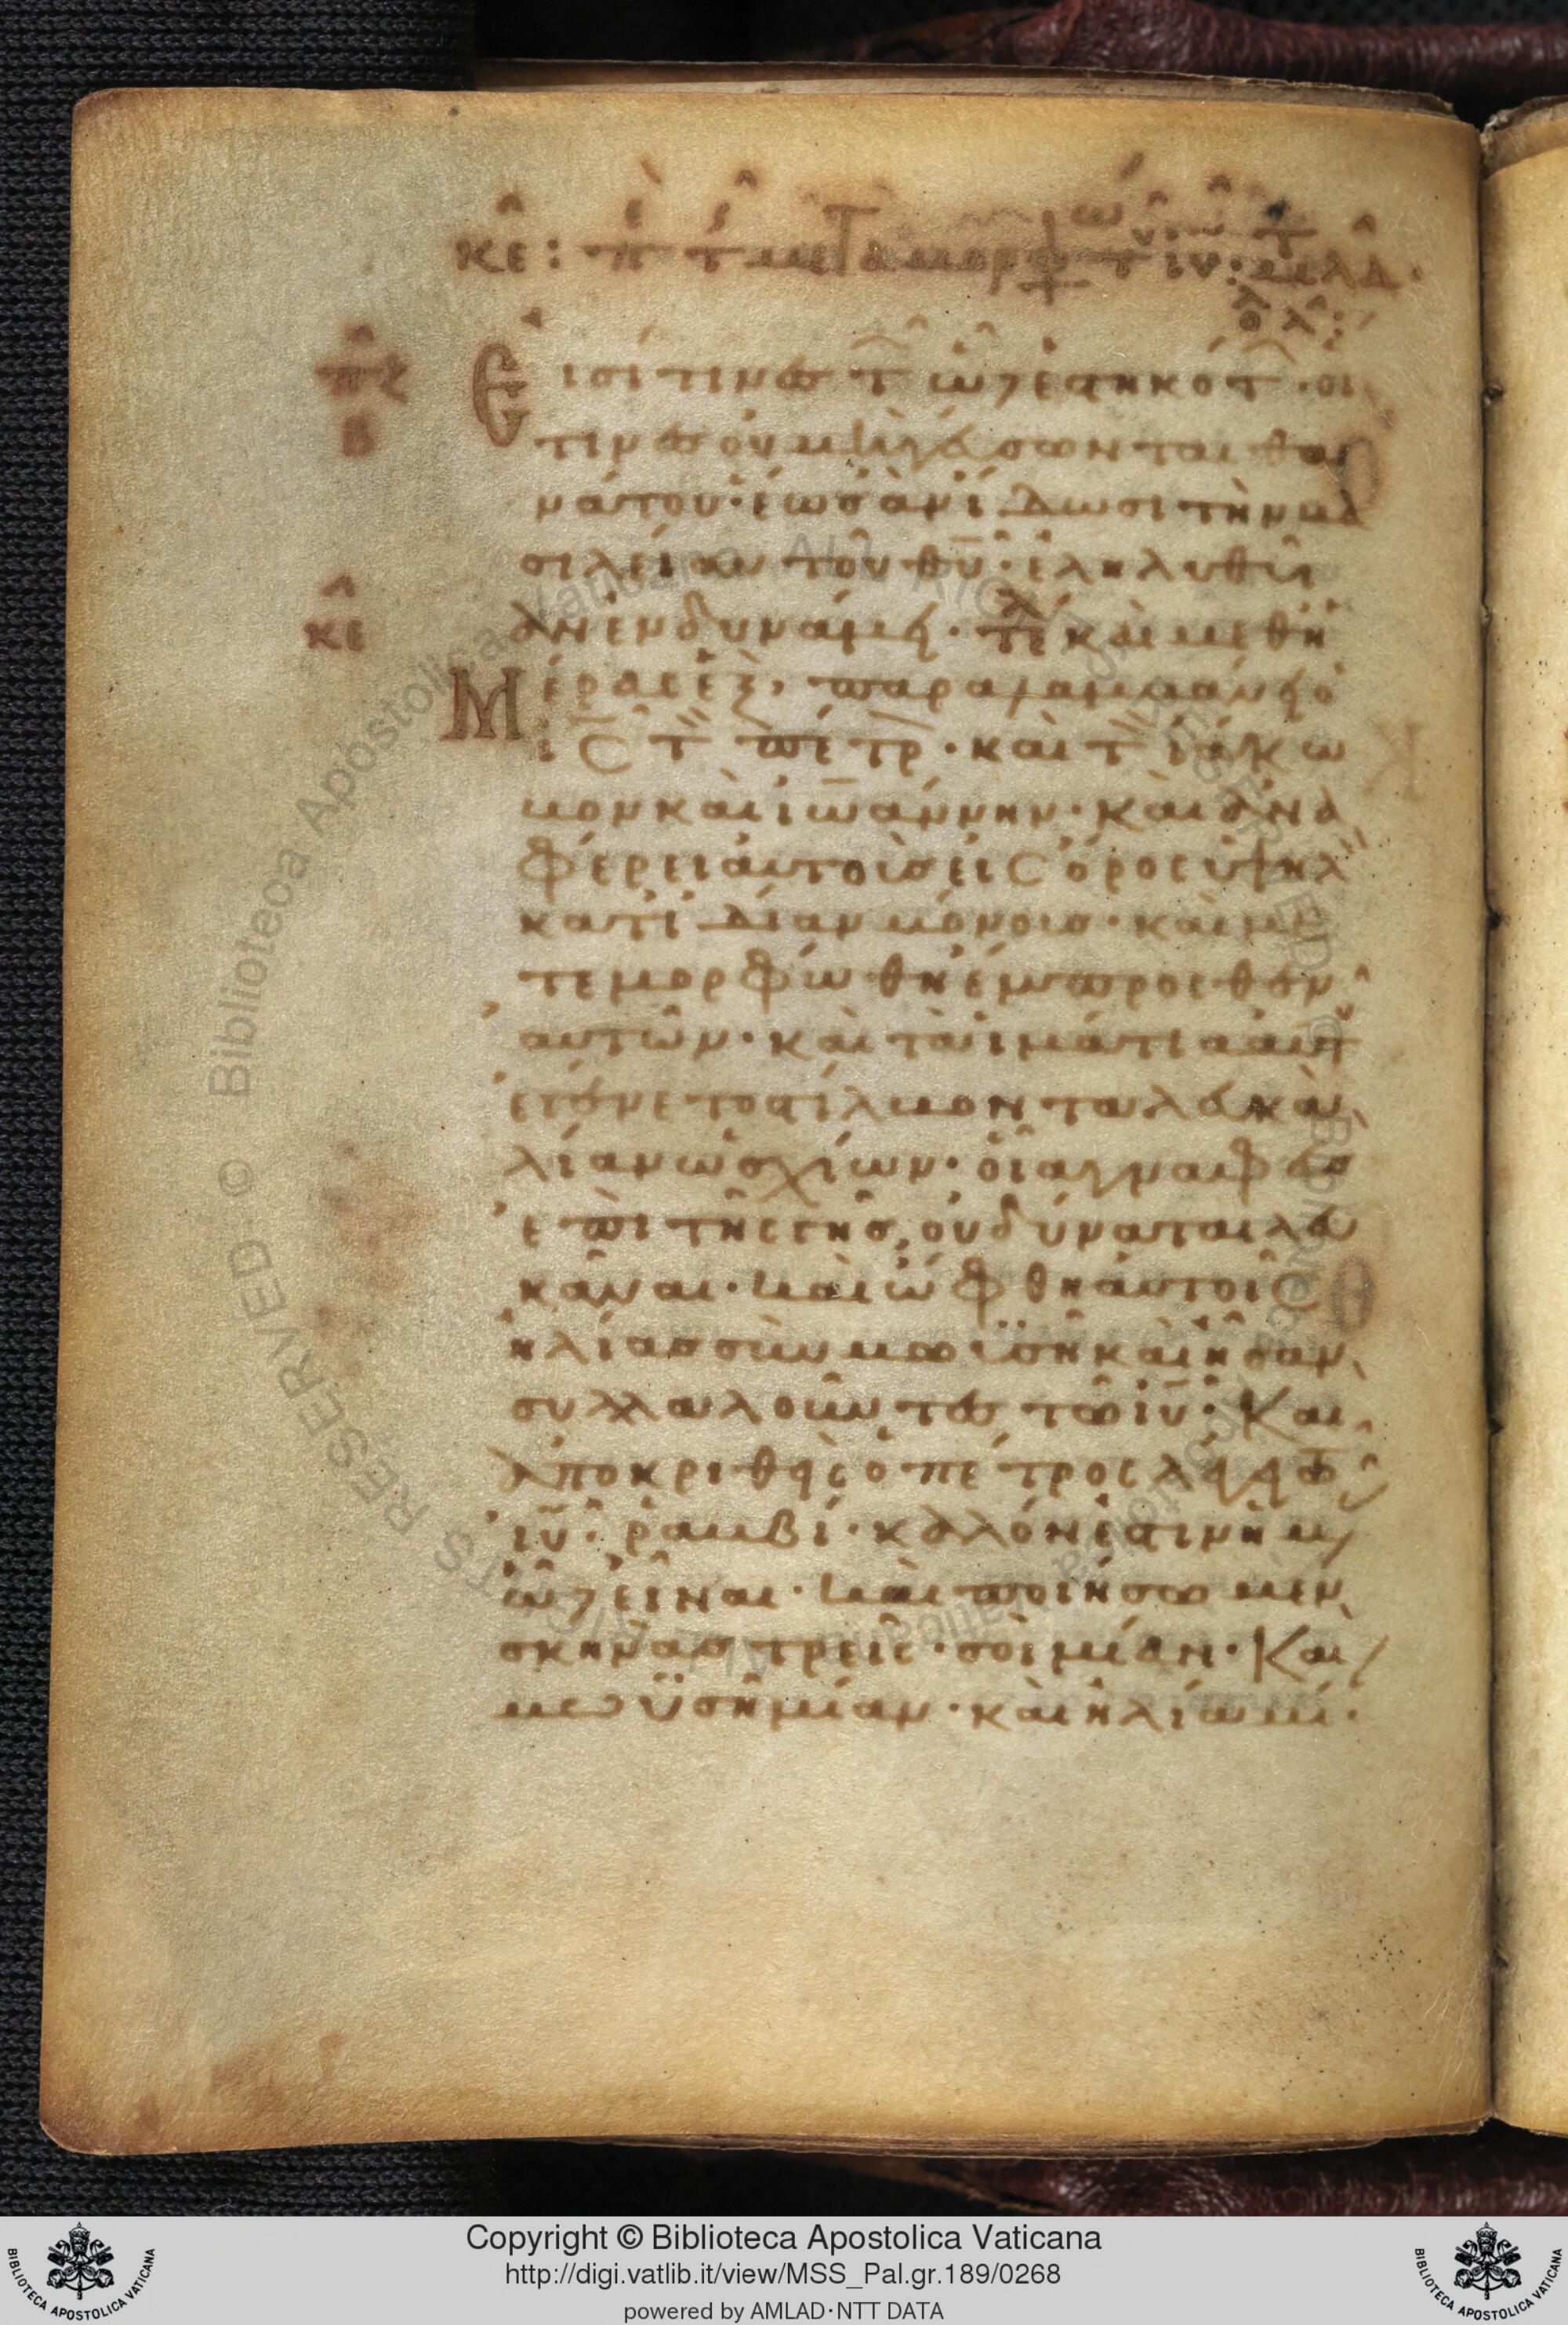 κε:
πζ
β
Εἰσί τινες τ ὧδε ἑστηκότ · οἵ
τινες οὐ μὴ γεύσωνται θα
νάτου · ἕως ἂν ἴδωσι τὴν βα
σιλείαν τοῦ θυ · ἐληλυθυῖ
αν ἐν δυνάμει · τε καὶ μεθ ἡ
κε
Μέρας ἓξ, παραλαμβάνει ὁ
ις τ πέτρ · καὶ τ ἰάκω
βον καὶ ἰωάννην · καὶ ἀνα
φέρει αὐτοὺς εἰς ὄρος ὑψηλ
κατ ἰδίαν μόνους · καὶ με
τεμορφώθη ἔμπροσθεν
αὐτῶν · καὶ τὰ ἱμάτια αὐτ
ἐγένετο στίλβοντα λευκὰ
λίαν ὡς χιών · οἷα γναφεὺς
ἐπὶ τῆς γῆς, οὐ δύναται λευ
κᾶναι · καὶ ὤφθη αὐτοῖς
ἠλίας σὺν μωϋσῆ καὶ ἦσαν
συλλαλοῦντες τῶ ιυ · Και
ἀποκριθεὶς ὁ πέτρος λέγει τῶ
ιυ · ραββί · καλόν ἐστιν ἡμ
ὧδε εἶναι · καὶ ποιήσωμεν
σκηνὰς τρεῖς · σοὶ μίαν · Και
μωϋσῆ μίαν · καὶ ἠλία μί ·
Copyright © Biblioteca Apostolica Vaticana
http://digi.vatlib.it/view/MSS_Pal.gr.189/0268
powered by AMLAD·NTT DATA
BIBLIOTECA APOSTOLICA VATICANA
BIBLIOTECA APOSTOLICA VATICANA